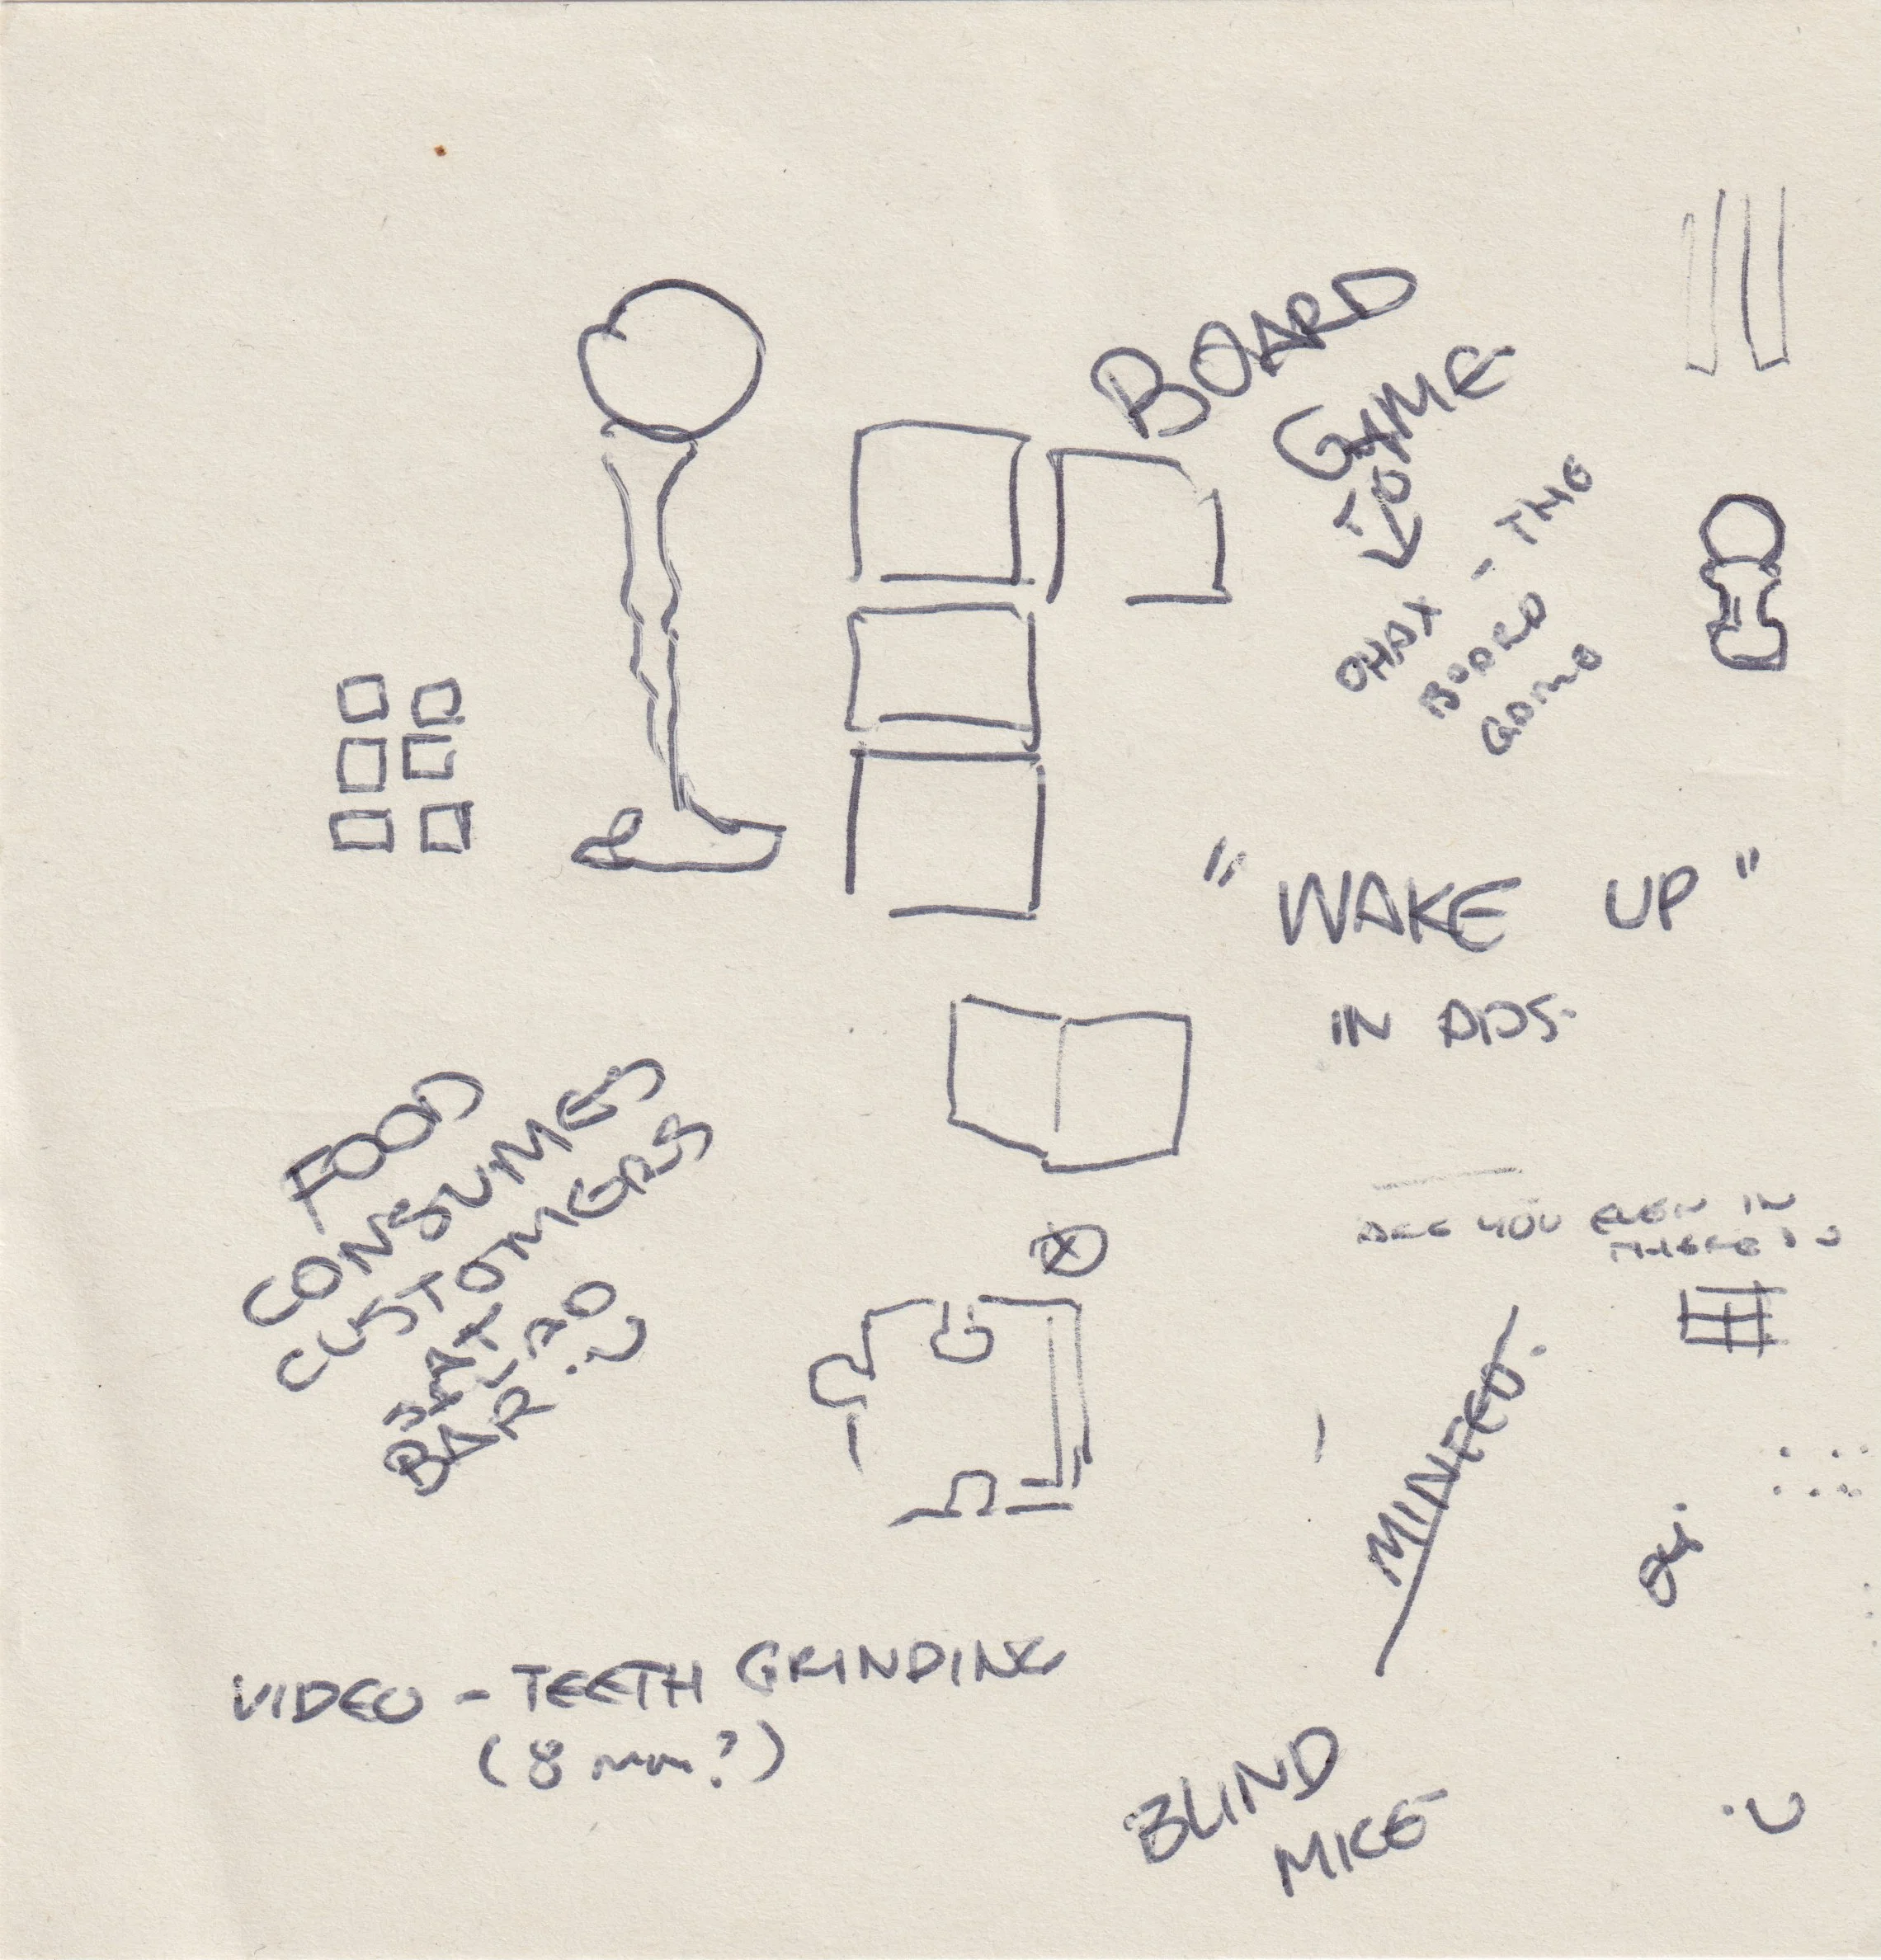 BOARD
GAME
OHAX - THE
BOARD
GAME
" WAKE UP "
IN ADS.
FOOD
CONSUMES
CUSTOMERS
BAR
ARE YOU EVEN IN
MINTED.
VIDEO - TEETH GRINDING
(8 mm?)
BLIND
MICE